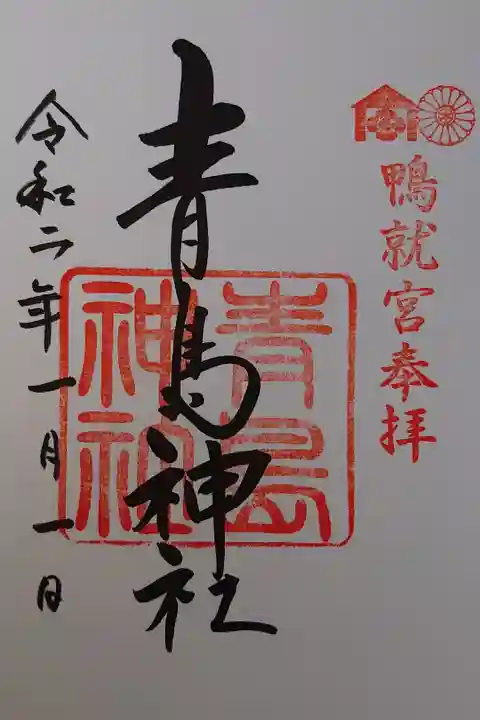 鴨就宮奉拝
青島神社
青島神社
令和二年一月一日